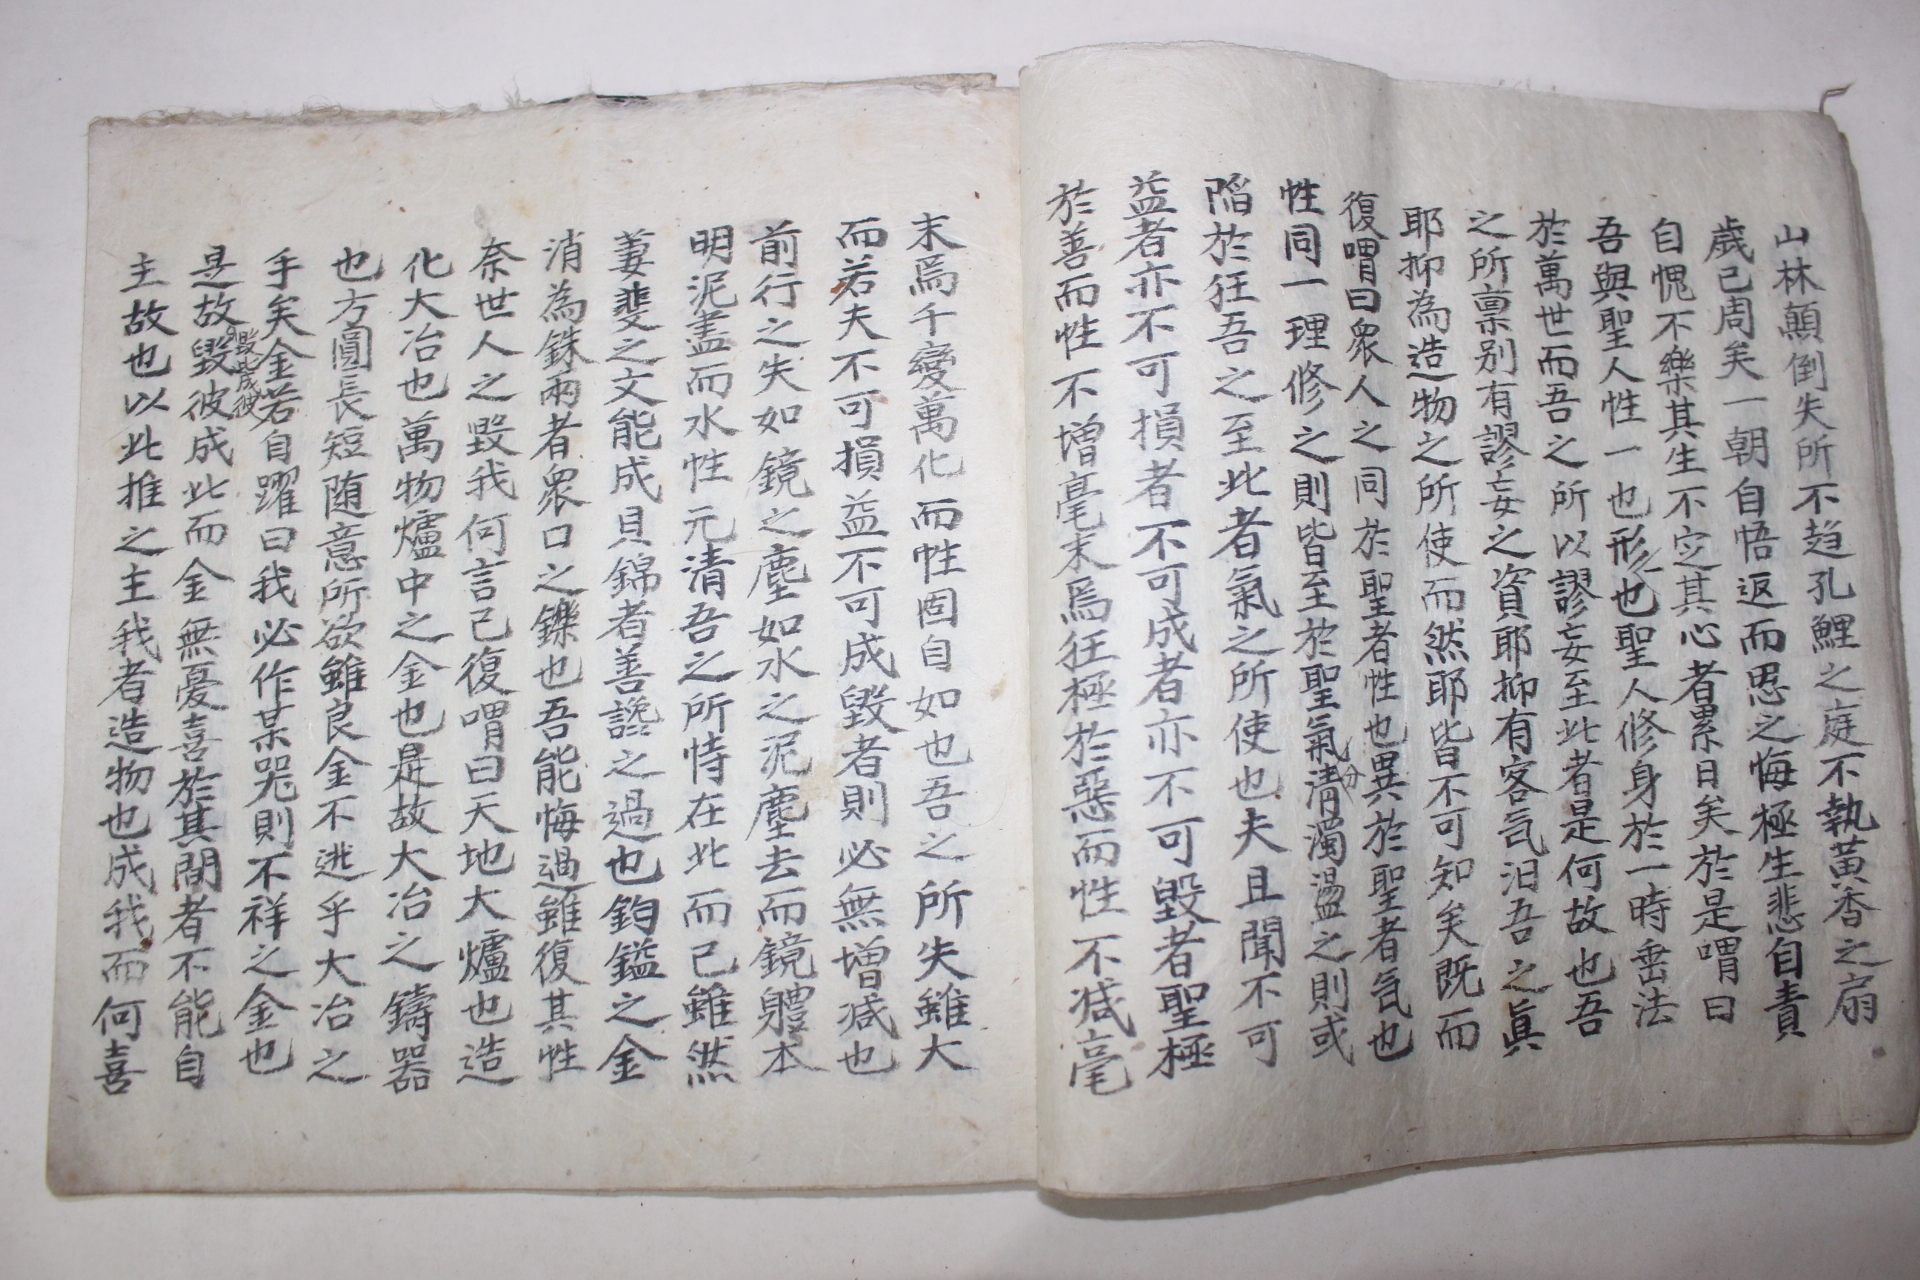 山林顚倒失所不趍孔鯉之庭不執黃香之扇
歲已周矣一朝自悟返而思之悔極生悲自責
自愧不樂其生不定其心者累日矣於是喟曰
吾與聖人性一也形一也聖人修身於一時垂法
於萬世而吾之所以謬妄至此者是何故也吾
之所禀別有謬妄之資耶抑有客气汨吾之眞
耶抑為造物之所使而然耶皆不可知矣旣而
復喟曰衆人之同於聖者性也異於聖者气也
性同一理修之則皆至於聖氣分淸濁盪之則或
陷於狂吾之至此者氣之所使也夫且聞不可
益者亦不可損者不可成者亦不可毀者聖極
於善而性不增毫末焉狂極於惡而性不减毫
末焉千變萬化而性固自如也吾之所失雖大
而若夫不可損益不可成毀者則必無增减也
前行之失如鏡之塵如水之泥塵去而鏡軆本
明泥盡而水性元淸吾之所恃在此而已雖然
萋斐之文能成貝錦者善讒之過也鈞鎰之金
消為銖兩者衆口之鑠也吾能悔過雖復其性
奈世人之毀我何言已復喟曰天地大爐也造
化大冶也萬物爐中之金也是故大冶之鑄器
也方圓長短随意所欲雖良金不逃乎大冶之
手矣金若自躍曰我必作某器則不祥之金也
是故毀彼成此毀此成彼而金無憂喜於其間者不能自
主故也以此推之主我者造物也成我而何喜